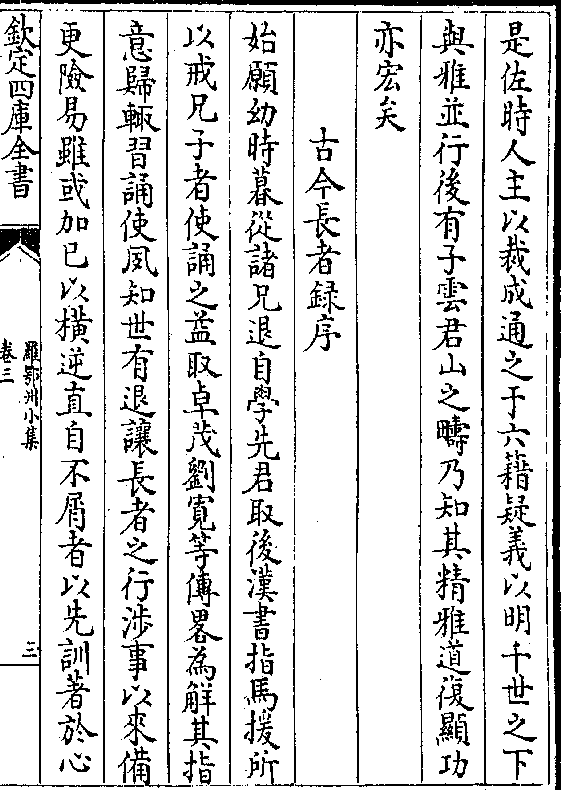 是佐時人主以裁成通之于六籍疑義以明千世之下
與雅並行後有子雲君山之疇乃知其精雅道復顯功
亦宏矣
古今長者録序
始願幼時暮從諸兄退自學先君取後漢書指馬援所
以戒兄子者使誦之益取卓茂劉寛等傳畧為解其指
意歸輒習誦使夙知世有退讓長者之行渉事以來備
更險易雖或加已以横逆直自不屑者以先訓著於心
欽定四庫全書
羅鄂州小集
卷三
三